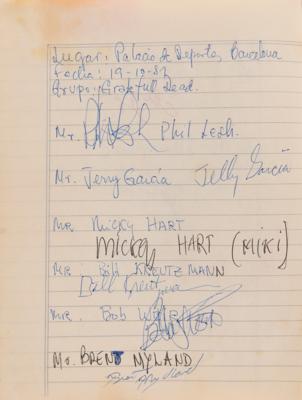 Lugar: Palacio de Deportes, Barcelona
Fecha: 19-10-81
Grupo: Grateful Dead.
Mr. Phil Lesh.
Mr. Jerry Garcia Jerry Garcia
MR Micky HART
Micky HART (Miki)
MR. Bill KREUTZMANN
Bill Kreutzmann
MR. Bob Weir
Mr. BRENT MYLAND
Brent Mydland